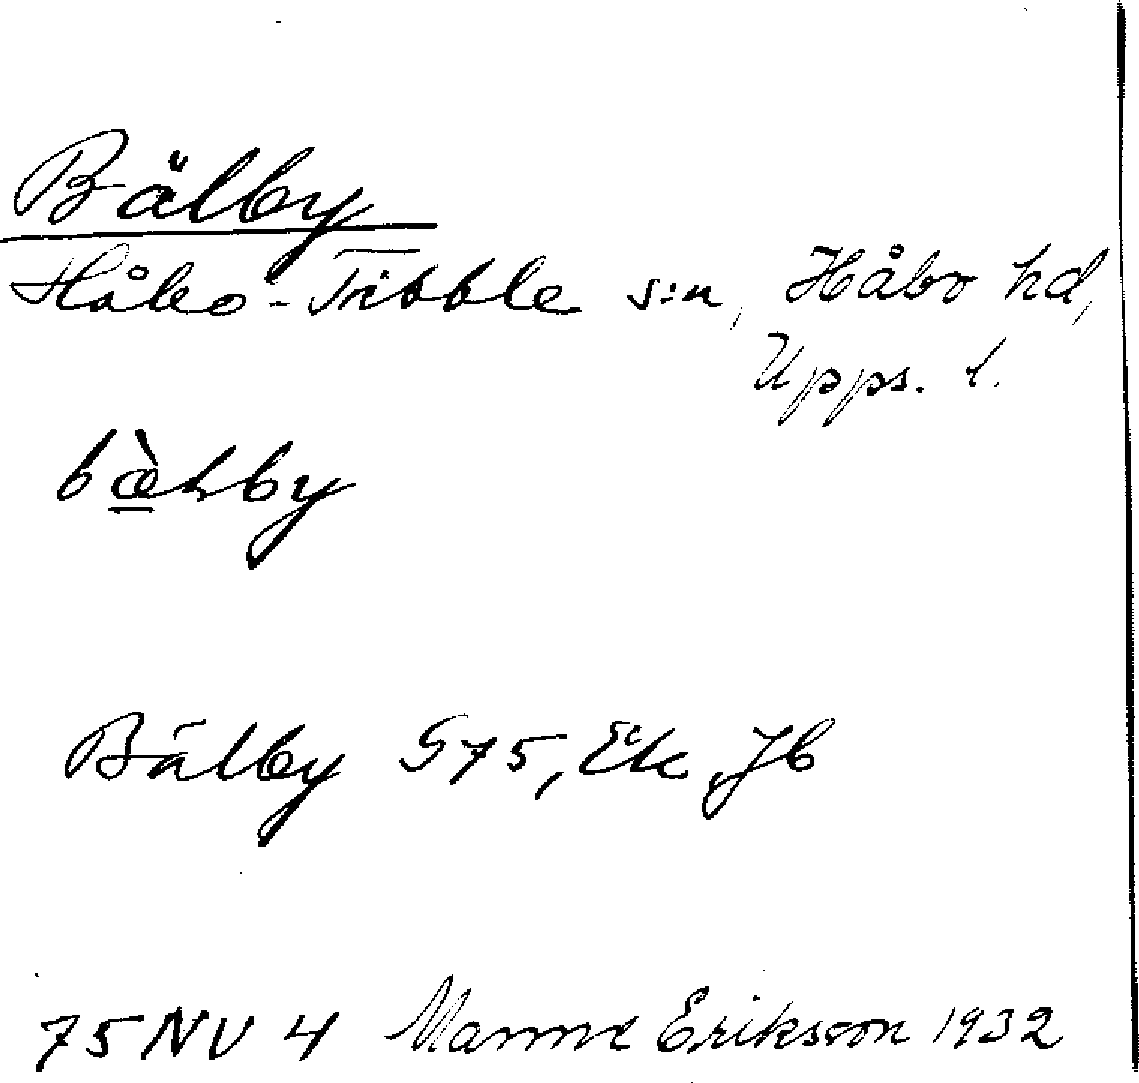 Bälby
Håbo-Tibble s:n, Håbo hd,
Upps. l.
Bälby G75, Ek, Jb
75 NV 4 Manne Eriksson 1932